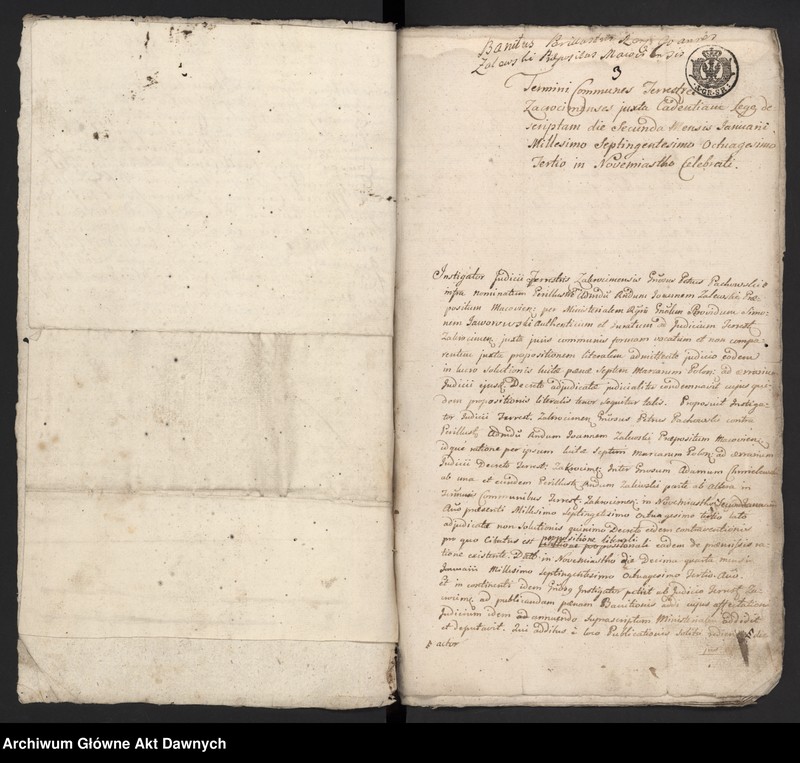 Banitus Perillustris Joannes
Zalewski Præpositus Macoviensis
3
Termini Communes Terrestres
Zacrocimenses juxta Cadentiam Lege de
scriptam die Secunda Mensis Januarii
Millesimo Septingentesimo Octuagesimo
Tertio in Novemiastho Celebrati.
Instigator Judicii Terrestris Zakrocimensis Gñosus Petrus Pachowski
infra nominatum Perillustr Admdũ Rndum Joannem Zalewski Præ-
positum Macovien: per Ministerialem Regni Gñalem Providum Simo-
nem Jaworowski authenticum et juratum ad Judicium Terrest
Zakrocimen juxta juris communis formam vocatum et non compa-
rentem juxta propositionem literalem admittente judicio eadem
in lucro solutionis luitæ pænæ Septem Marcarum Polon: ad ærarium
Judicii ejusq Decreto adjudicatæ judicialiter condemnavit cujus qui-
dem propositionis literalis tenor sequitur talis. Proposuit Instiga-
tor Judicii Terrest. Zakrocimen Gñosus Petrus Pachowski contra
Perillustr Admdũ Rndum Joannem Zalewski Præpositum Macovien
idque ratione per ipsum luitæ Septem Marcarum Polon: ad ærarium
Judicii Decreto Terrest. Zakrocime: Inter Gnosum Adamum
ab una et eundem Perillustr Rndum Zalewski parte ab altera in
Terminis Communibus Terrest: Zakrocimen: in Novemiastho
Ao præsenti Millesimo Septingentesimo Octuagesimo tertio lato
adjudicatæ non Solutionis quinimo Decreto eidem contraventionis
pro quo Citatus est propositione literali
propositionali eadem de præmissis ra-
tione existente. Datt: in Novemiastho die Decima quarta mensis
Januarii Millesimo Septingentesimo Octuagesimo Tertio Ao.
Et in continenti idem Gnosus Instigator petiit ab Judicio Terrest Za-
crocime: ad publicandam pænam Bannitionis addi cujus affectationi
Judicium idem annuendo Suprascriptum Ministerialem addidit
et deputavit. Qui additus à loco Publicationis solito
actor
Archiwum Główne Akt Dawnych